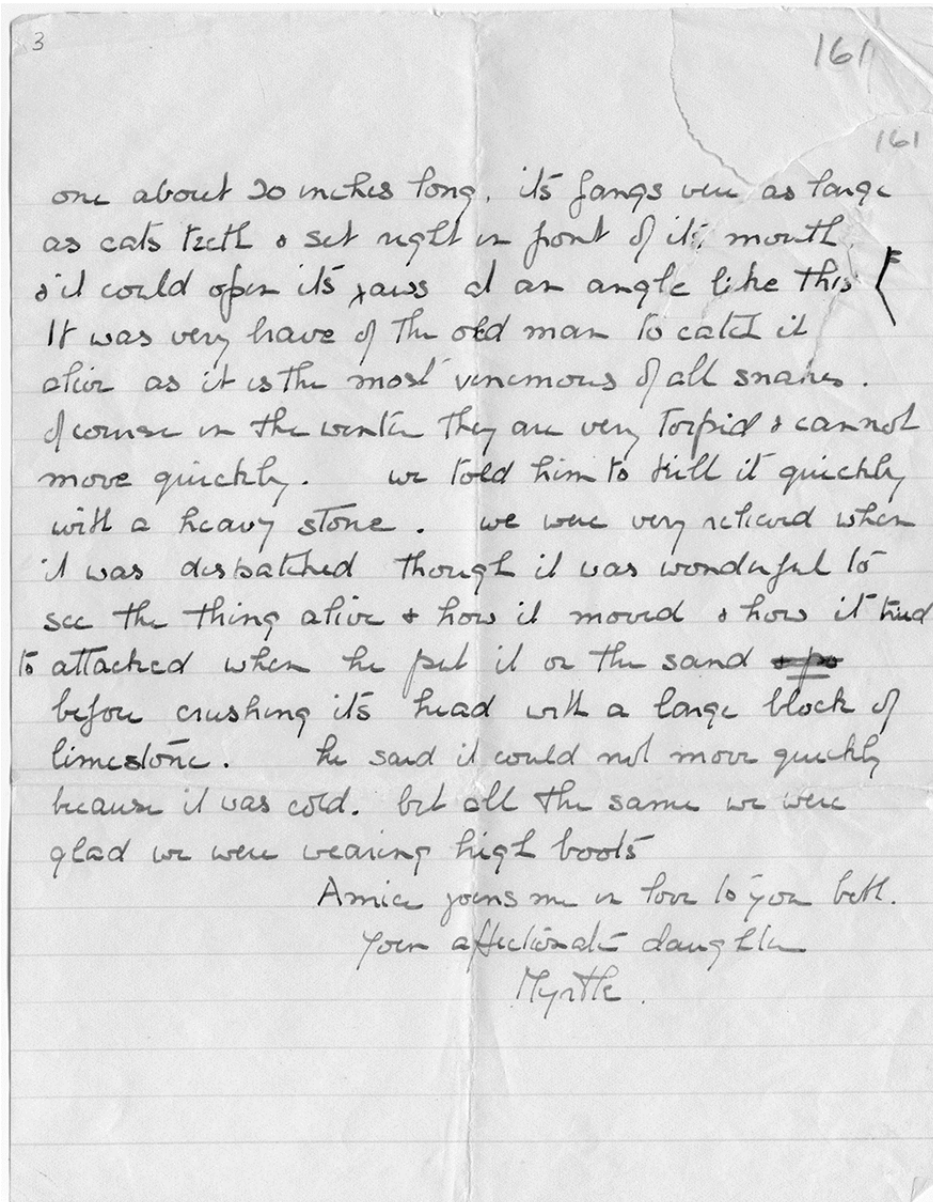 3
161
161
one about 20 inches long. its fangs were as large
as cats teeth & set right in front of its mouth
& it could open its jaws at an angle like this
It was very brave of the old man to catch it
alive as it is the most venemous of all snakes.
of course in the winter they are very torpid & cannot
move quickly. we told him to kill it quickly
with a heavy stone. we were very relieved when
it was dispatched though it was wonderful to
see the thing alive & how it moved & how it tried
to attacked when he put it on the sand
before crushing its head with a large block of
limestone. he said it could not move quickly
because it was cold. but all the same we were
glad we were wearing high boots
Amice joins me in love to you both.
your affectionate daughter
Myrtle.